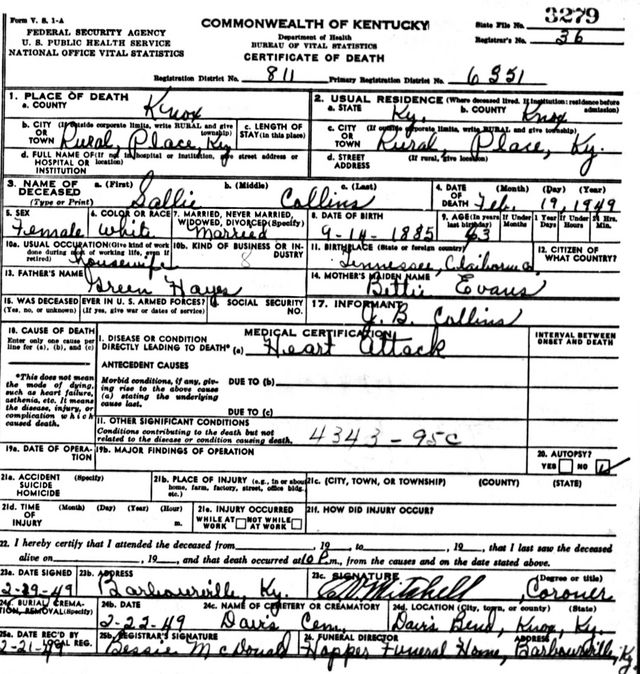 Form V. S. 1-A
COMMONWEALTH OF KENTUCKY
State File No. 3279
FEDERAL SECURITY AGENCY
U. S. PUBLIC HEALTH SERVICE
NATIONAL OFFICE VITAL STATISTICS
Department of Health
BUREAU OF VITAL STATISTICS
CERTIFICATE OF DEATH
Registrar's No. 36
Registration District No. 811 Primary Registration District No. 6351
1. PLACE OF DEATH
a. COUNTY Knox
2. USUAL RESIDENCE (Where deceased lived. If institution: residence before admission)
a. STATE Ky. b. COUNTY Knox
b. CITY (If outside corporate limits, write RURAL and give township)
OR TOWN Rural, Place, Ky
c. LENGTH OF STAY (in this place)
c. CITY (If outside corporate limits, write RURAL and give township)
OR TOWN Rural, Place, Ky.
d. FULL NAME OF (If not in hospital or institution, give street address or location)
HOSPITAL OR INSTITUTION
d. STREET ADDRESS (If rural, give location)
3. NAME OF DECEASED (Type or Print)
a. (First) b. (Middle) c. (Last)
Sallie Collins
4. DATE OF DEATH (Month) (Day) (Year)
Feb. 19, 1949
5. SEX
Female
6. COLOR OR RACE
White
7. MARRIED, NEVER MARRIED, WIDOWED, DIVORCED (Specify)
Married
8. DATE OF BIRTH
9-14-1885
9. AGE (In years last birthday)
63
If Under 1 Year Months Days
If Under 24 Hrs. Hours Min.
10a. USUAL OCCUPATION (Give kind of work done during most of working life, even if retired)
Housewife
10b. KIND OF BUSINESS OR INDUSTRY
8
11. BIRTHPLACE (State or foreign country)
Tennessee, Claiborne
12. CITIZEN OF WHAT COUNTRY?
13. FATHER'S NAME
Green Hayes
14. MOTHER'S MAIDEN NAME
Bettie Evans
15. WAS DECEASED EVER IN U. S. ARMED FORCES?
(Yes, no, or unknown) (If yes, give war or dates of service)
SOCIAL SECURITY NO.
17. INFORMANT
J. B. Collins
18. CAUSE OF DEATH
Enter only one cause per line for (a), (b), and (c)
MEDICAL CERTIFICATION
INTERVAL BETWEEN ONSET AND DEATH
I. DISEASE OR CONDITION DIRECTLY LEADING TO DEATH* (a) Heart Attack
*This does not mean the mode of dying, such as heart failure, asthenia, etc. It means the disease, injury, or complication which caused death.
ANTECEDENT CAUSES
Morbid conditions, if any, giving rise to the above cause (a) stating the underlying cause last.
DUE TO (b)
DUE TO (c)
II. OTHER SIGNIFICANT CONDITIONS
Conditions contributing to the death but not related to the disease or condition causing death.
4343-95c
19a. DATE OF OPERATION
19b. MAJOR FINDINGS OF OPERATION
20. AUTOPSY?
YES NO
21a. ACCIDENT SUICIDE HOMICIDE (Specify)
21b. PLACE OF INJURY (e.g., in or about home, farm, factory, street, office bldg., etc.)
21c. (CITY, TOWN, OR TOWNSHIP) (COUNTY) (STATE)
21d. TIME OF INJURY (Month) (Day) (Year) (Hour) m.
21e. INJURY OCCURRED
WHILE AT WORK NOT WHILE AT WORK
21f. HOW DID INJURY OCCUR?
22. I hereby certify that I attended the deceased from , 19 to , 19 , that I last saw the deceased
alive on , 19 , and that death occurred at 10 P.m., from the causes and on the date stated above.
23a. DATE SIGNED
23b. ADDRESS
Barbourville, Ky.
23c. SIGNATURE
Mitchell
(Degree or title)
Coroner
24a. BURIAL, CREMATION, REMOVAL (Specify)
24b. DATE
2-22-49
24c. NAME OF CEMETERY OR CREMATORY
Davis Cem.
24d. LOCATION (City, town, or county) (State)
Davis Bend, Knox, Ky.
25a. DATE REC'D BY LOCAL REG.
2-21-49
25b. REGISTRAR'S SIGNATURE
Bessie McDonald
FUNERAL DIRECTOR ADDRESS
Hopper Funeral Home, Barbourville, Ky.